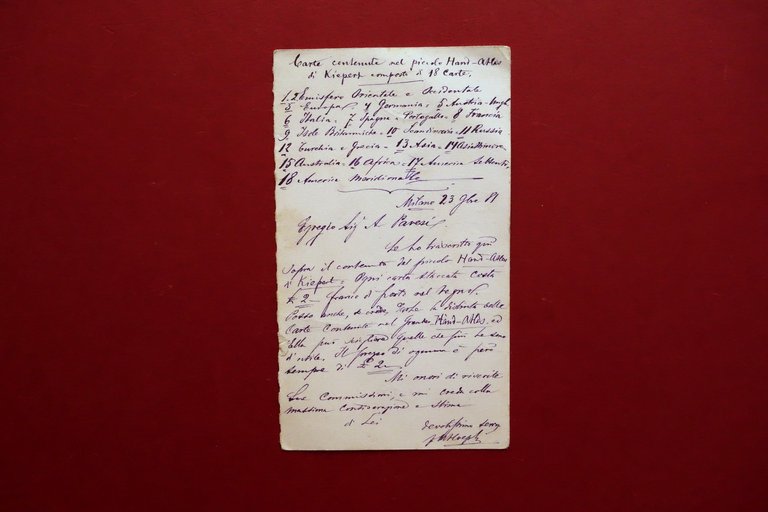 Carte contenute nel piccolo Hand-Atlas
di Kiepert composto di 18 Carte.
1.2 Emisfero Orientale e Occidentale
3 Europa. 4 Germania. 5 Austria-Ungh.
6 Italia. 7 Spagna e Portogallo. 8 Francia
9 Isole Britanniche. 10 Scandinavia. 11 Russia.
12 Turchia e Grecia. 13 Asia. 14 Asia Minore.
15 Australia. 16 Africa. 17 America Settent.
18 America Meridionale
Milano 23 9bre 81
Egregio Sig. A. Pavesi.
Le ho trascritto qui
sopra il contenuto del piccolo Hand-Atlas
di Kiepert e ogni carta staccata costa
£ 2 franco di porto nel regno.
Posso anche, se crede, la distinta delle
Carte Contenute nel Grande Hand-Atlas, ed
Ella può quelle che più le sono
d'utile. Il prezzo di ognuna è però
sempre di £ 2.
Mi onori di riverite
Sue Commissioni, e mi creda colla
massima Considerazione e Stima
di Lei
devotissimo
Hoepli